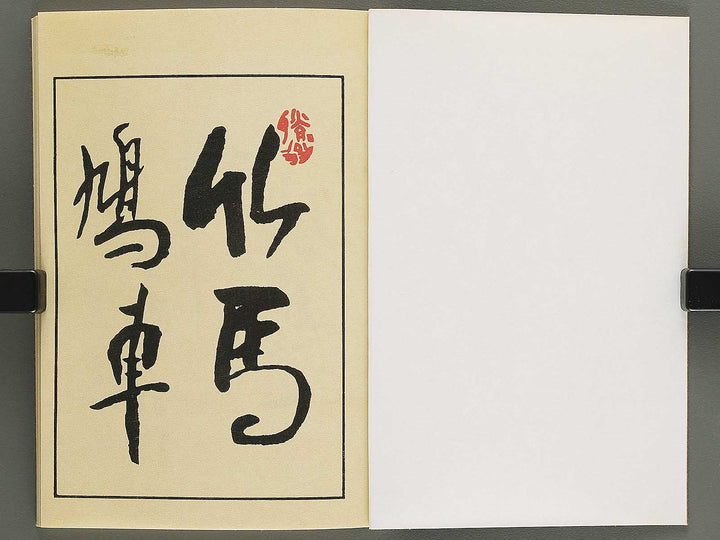 竹馬
鳩車